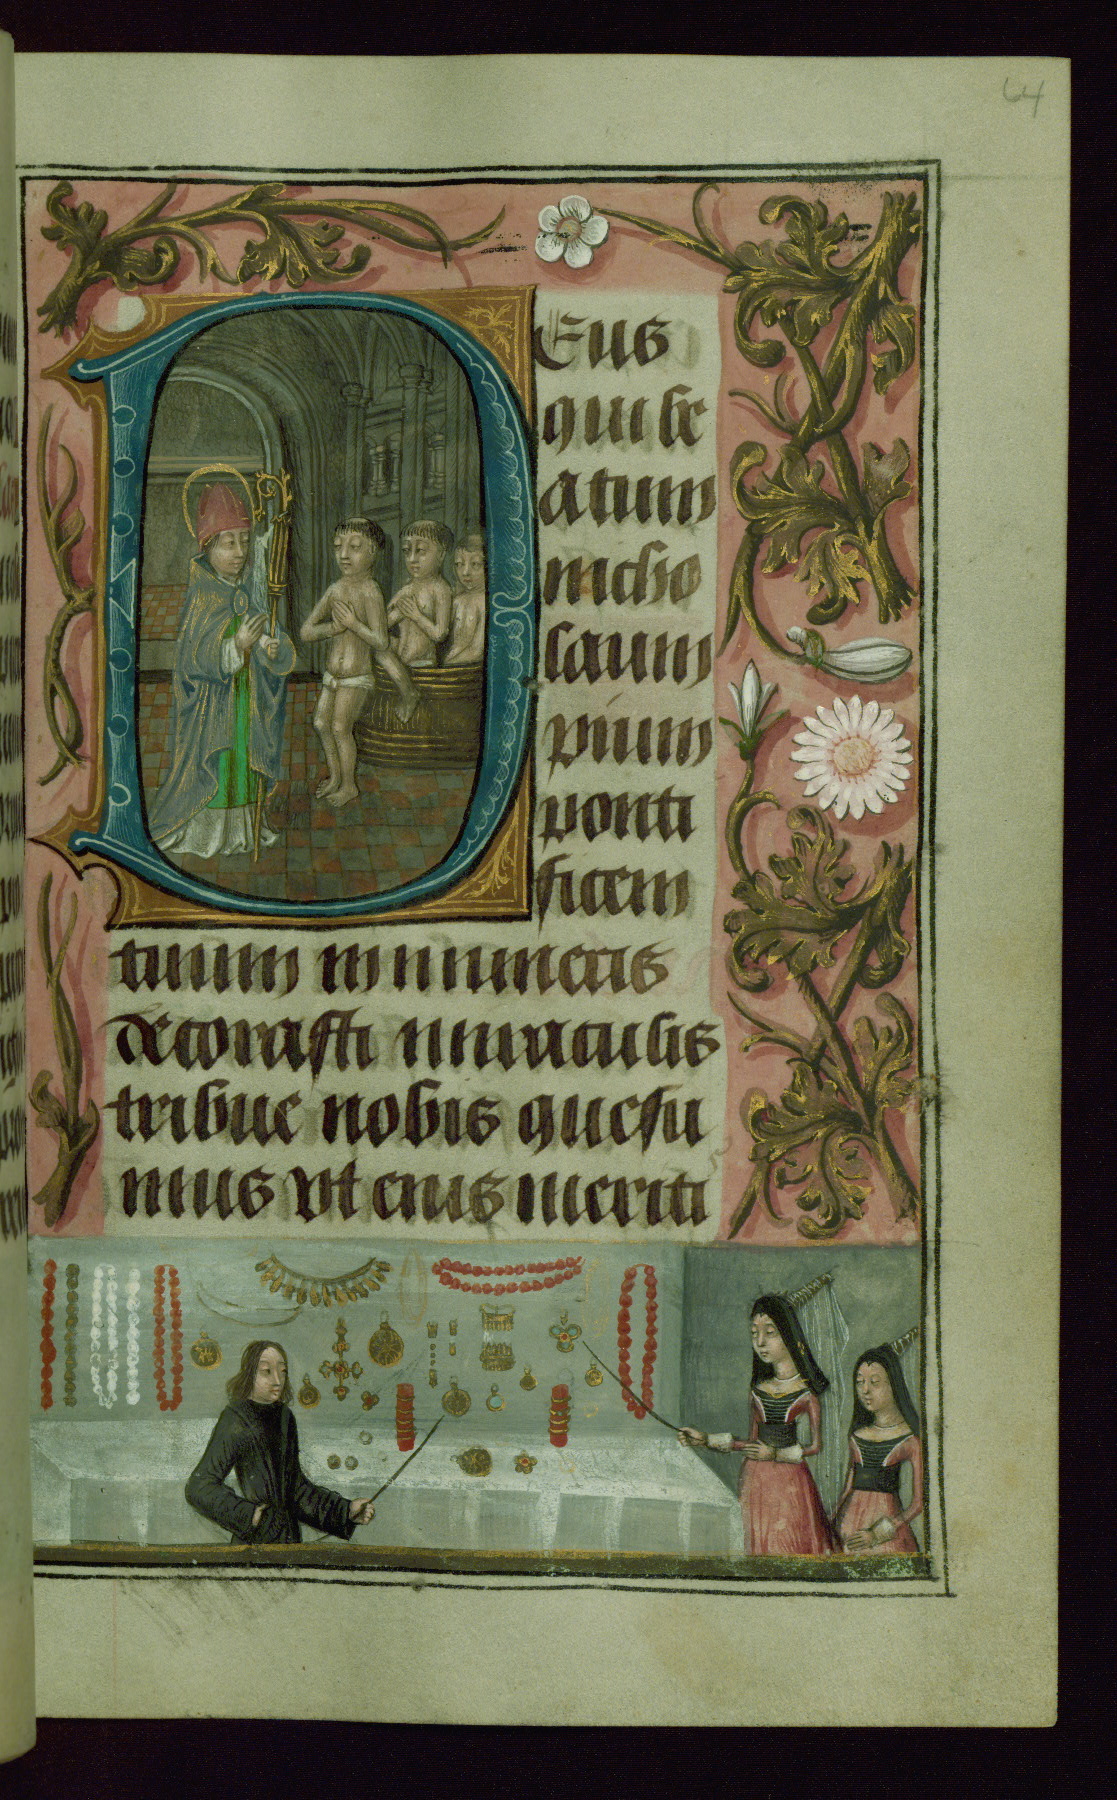 64
Deus
qui be
atum
nicho
laum
pium
ponti
ficem
tuum innumeris
decorasti miraculis
tribue nobis quesu
mus vt eius meriti